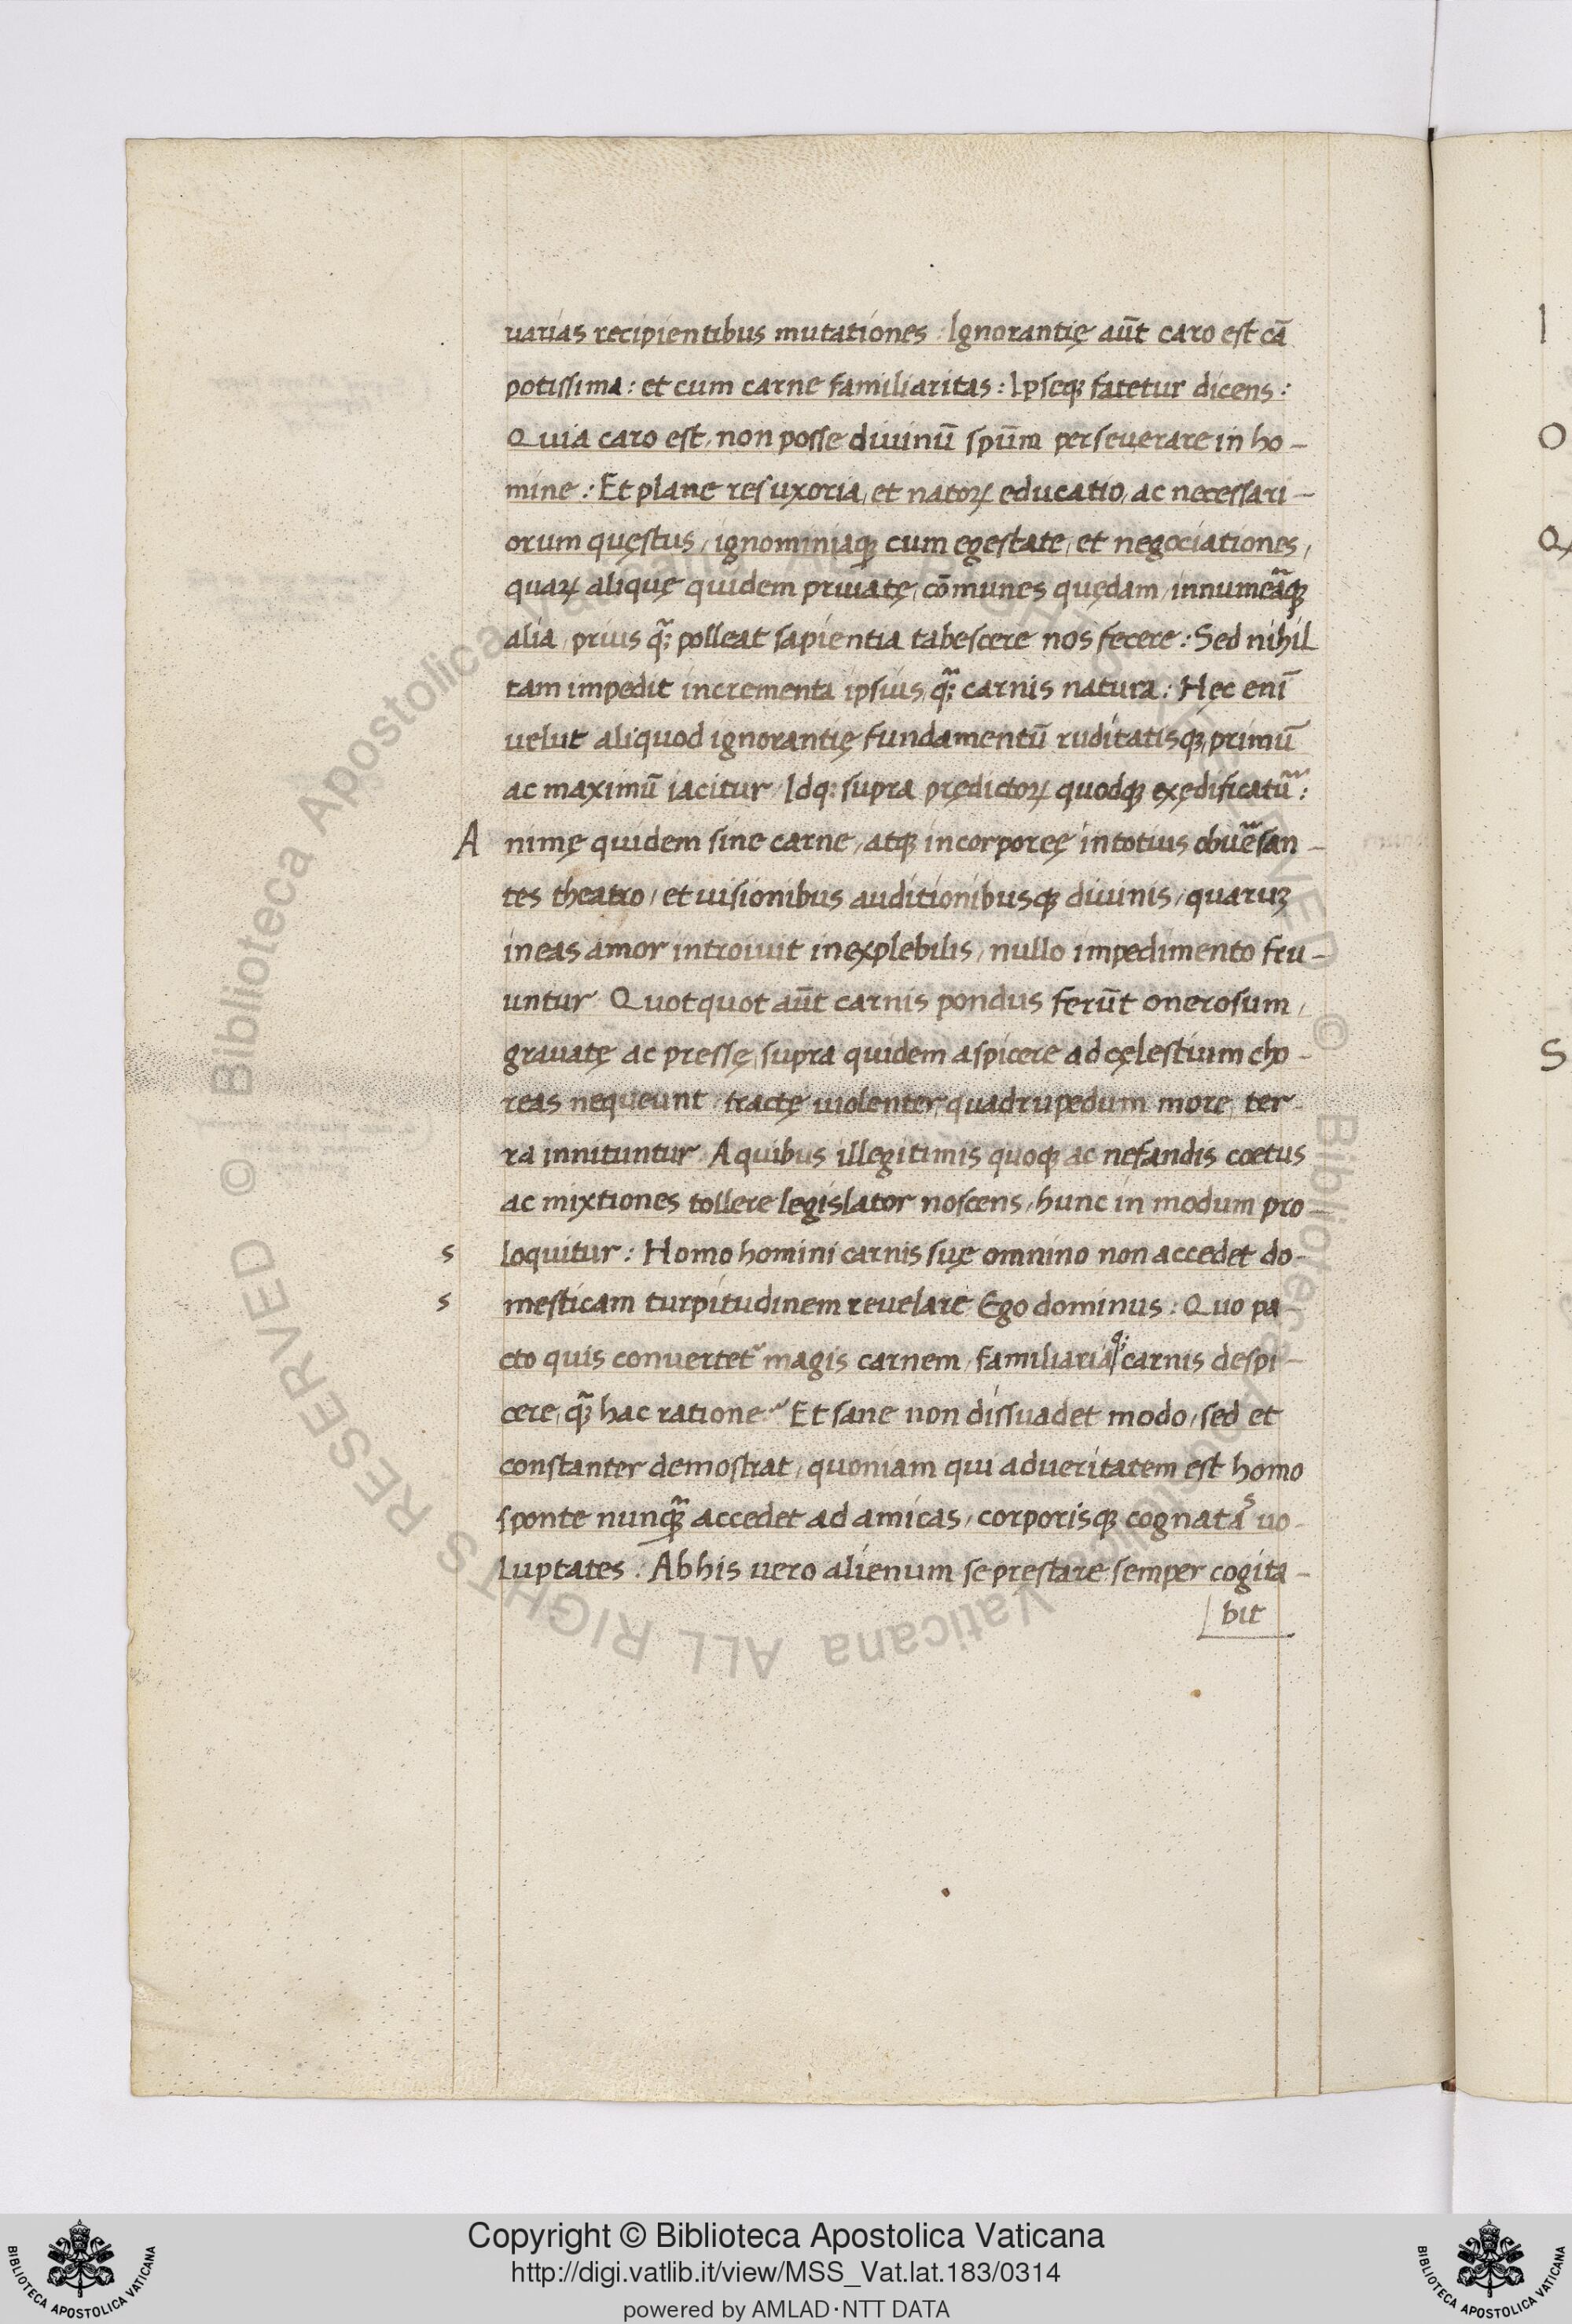 uarias recipientibus mutationes. Ignorantię aūt caro est cā
potissima: et cum carne familiaritas: Ipseqꝫ fatetur dicens:
Quia caro est, non posse diuinū spūm perseuerare in ho-
mine: Et plane res uxoria, et natoꝝ educatio, ac necessari-
orum quęstus, ignominiaqꝫ cum egestate, et negociationes,
quaꝝ alique quidem priuatę, cōmunes quędam, innumeāqꝫ
alia, prius q̃; polleat sapientia tabescere nos fecere: Sed nihil
tam impedit incrementa ipsius, q̃; carnis natura: Hęc enī
uelut aliquod ignorantię fundamentū ruditatisqꝫ, primū
ac maximū iacitur, Idq: supra prędictoꝝ quodqꝫ exędificatũ:
A nimę quidem sine carne, atqꝫ incorporeę in totius obuẽsan-
tes theatro, et uisionibus auditionibusqꝫ diuinis, quaruꝫ
in eas amor introiuit inexplebilis, nullo impedimento fru-
untur. Quotquot aūt carnis pondus ferūt onerosum,
grauatę ac pressę, supra quidem aspicere ad cęlestium cho-
reas nequeunt, tractę uiolenter, quadrupedum more, ter-
ra innituntur. A quibus illegitimis quoqꝫ ac nefandis coetus
ac mixtiones tollere legislator noscens, hunc in modum pro-
s loquitur: Homo homini carnis suę omnino non accedet do-
s mesticam turpitudinem reuelare Ego dominus: Quo pa-
cto quis conuertet᷑ magis carnem, familiaria q; carnis despi-
cere, q̃ꝫ hac ratione: Et sane non dissuadet modo, sed et
constanter demostrat, quoniam qui ad ueritatem est homo
sponte nunqꝫ̃ accedet ad amicas, corporisqꝫ cognatas uo-
luptates. Ab his uero alienum se prestare semper cogita-
bit
I
O
S
Copyright © Biblioteca Apostolica Vaticana
http://digi.vatlib.it/view/MSS_Vat.lat.183/0314
powered by AMLAD·NTT DATA
BIBLIOTECA APOSTOLICA VATICANA
BIBLIOTECA APOSTOLICA VATICANA
© Biblioteca Apostolica Vaticana ALL RIGHTS RESERVED © Biblioteca Apostolica Vaticana ALL RIGHTS RESERVED